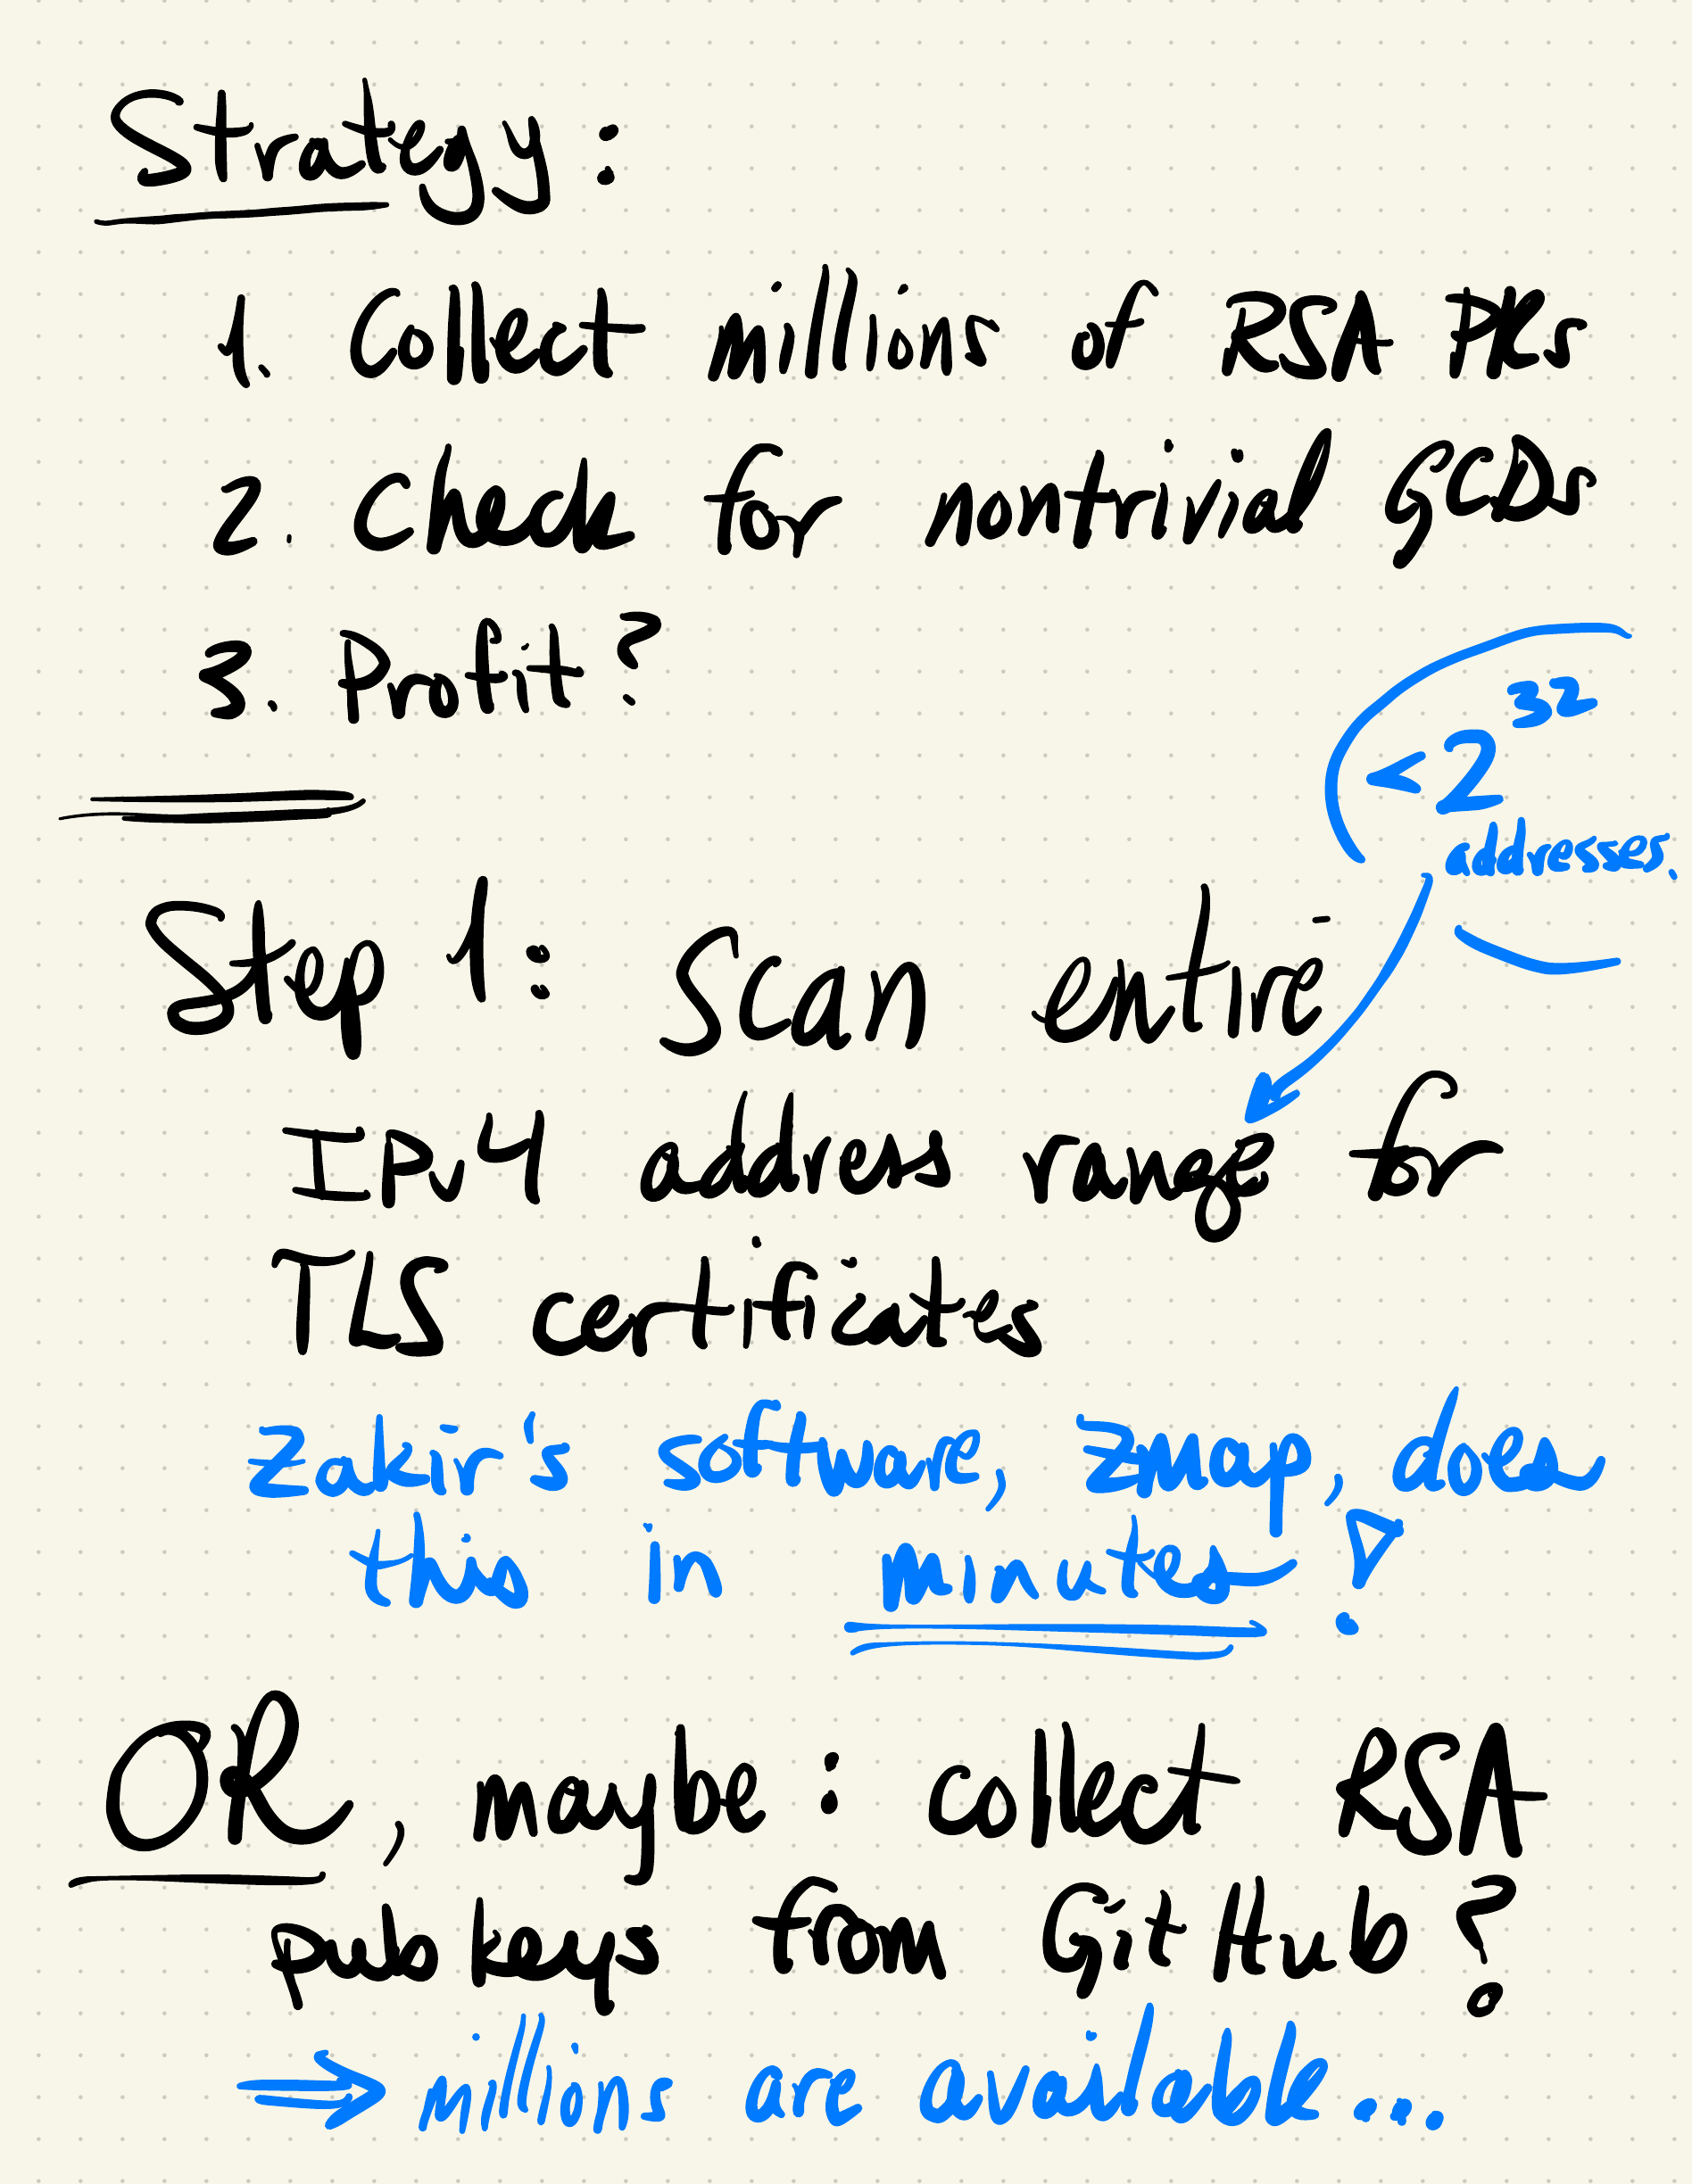 Strategy:
1. Collect millions of RSA PKs
2. Check for nontrivial GCDs
3. Profit?
< 2^32
addresses.
Step 1: Scan entire
IPv4 address range for
TLS certificates
Zakir's software, ZMap, does
this in minutes!
OR, maybe: collect RSA
pubkeys from GitHub?
⇒ millions are available...